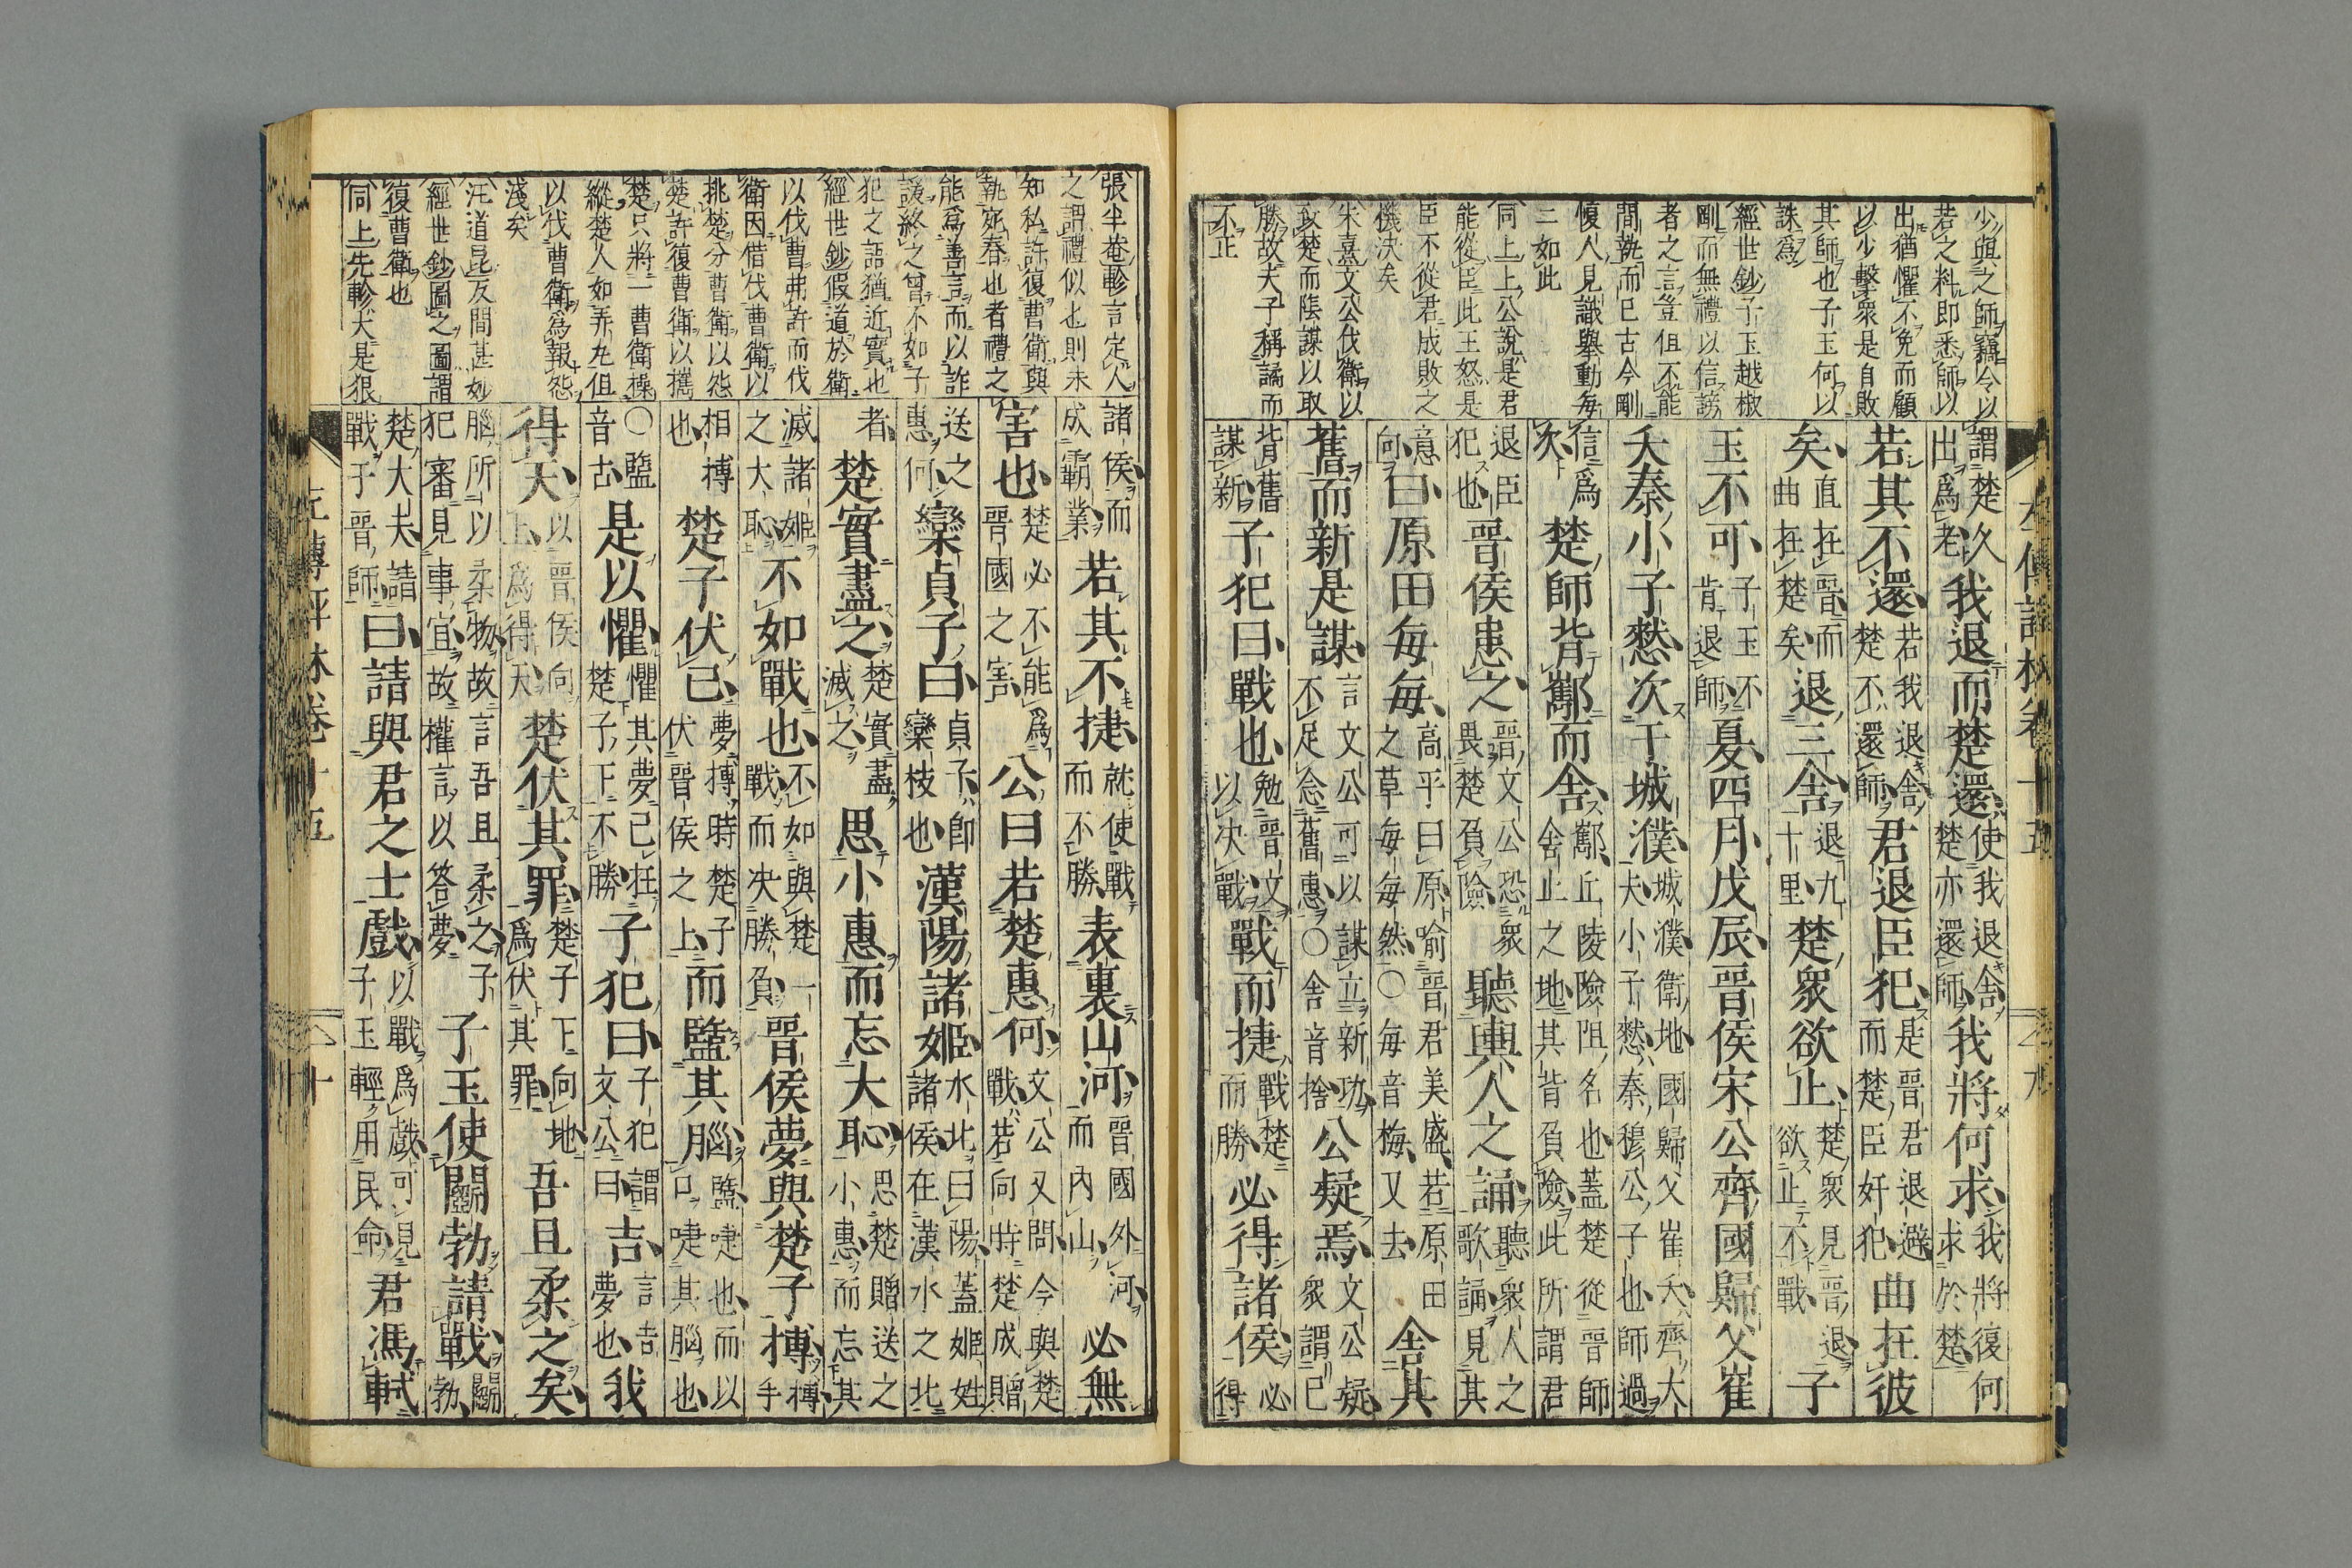 左傳評林卷十五
少與之師竊今以
若之料即悉師以
出猶懼不免而顧
以少擊衆是自敗
其師也子玉何以
誅爲
經世鈔子玉越椒
剛而無禮以信謗
者之言豈但不能
間執而已古今剛
愎人見識舉動每
二如此
同上上公說是君
能從臣此王怒是
臣不從君成敗之
機決矣
朱熹文公伐衛以
致楚而陰謀以取
勝故夫子稱譎而
不正
謂楚久出爲老我退而楚還使我退舍楚亦還師我將何求我將復何求於楚
若其不還若我退舍楚不還師君退臣犯是晉君退避而楚臣奸犯曲在彼
矣直在晉而曲在楚矣退三舍退九十里楚衆欲止楚衆見晉退欲止不戰子
玉不可子玉不肯退師夏四月戊辰晉侯宋公齊國歸父崔
夭秦小子憖次于城濮城濮衛地國歸父崔夭齊大夫小子憖秦穆公子也師過
信爲次楚師背酅而舍酅丘陵險阻名也蓋楚從晉師舍止之地其背負險此所謂君
退臣犯也晉侯患之晉文公恐衆畏楚負險聽輿人之誦聽衆人之歌誦見其
意向曰原田每每高平曰原喻晉君美盛若原田之草每每然〇每音梅又去舍其
舊而新是謀言文公可以謀立新功不足念舊惠〇舍音捨公疑焉文公疑衆謂己
背舊謀新子犯曰戰也勉晉文以決戰戰而捷戰楚而勝必得諸侯必得
張半菴軫言定人
之謂禮似也則未
知私許復曹衛與
執宛春也者禮之
能爲善言而以詐
諼終之曾不如子
犯之語猶近實也
經世鈔假道於衛
以伐曹弗許而伐
衛因借伐曹衛以
挑楚分曹衛以怨
楚許復曹衛以攜
楚只將一曹衛操
縱楚人如弄丸但
以伐曹衛爲報怨
淺矣
汪道昆反間甚妙
經世鈔圖之圖謂
復曹衛也
同上先軫大是狠
諸侯而成霸業若其不捷就使戰而不勝表裏山河晉國外河而內山必無
害也楚必不能爲晉國之害公曰若楚惠何文公又問今與楚戰若向時楚成贈
送之惠何欒貞子曰貞子即欒枝也漢陽諸姬水北曰陽蓋姬姓諸侯在漢水之北
者楚實盡之楚實盡滅之思小惠而忘大恥思楚贈送之小惠而忘其
滅諸姬之大恥不如戰也不如與楚一戰而決勝負晉侯夢與楚子搏搏手
相搏也楚子伏己夢搏時楚子伏晉侯之上而盬其腦盬啑也而以口啑其腦也
〇盬音古是以懼懼其夢己在楚子下不勝子犯曰子犯謂文公曰吉言吉夢也我
得天以晉侯向上爲得天楚伏其罪楚子下向地爲伏其罪吾且柔之矣
腦所以柔物故言吾且柔之子犯審見事宜故權言以答夢子玉使鬬勃請戰鬬勃
楚大夫請戰于晉師曰請與君之士戲以戰爲戲可見子玉輕用民命君馮軾
十